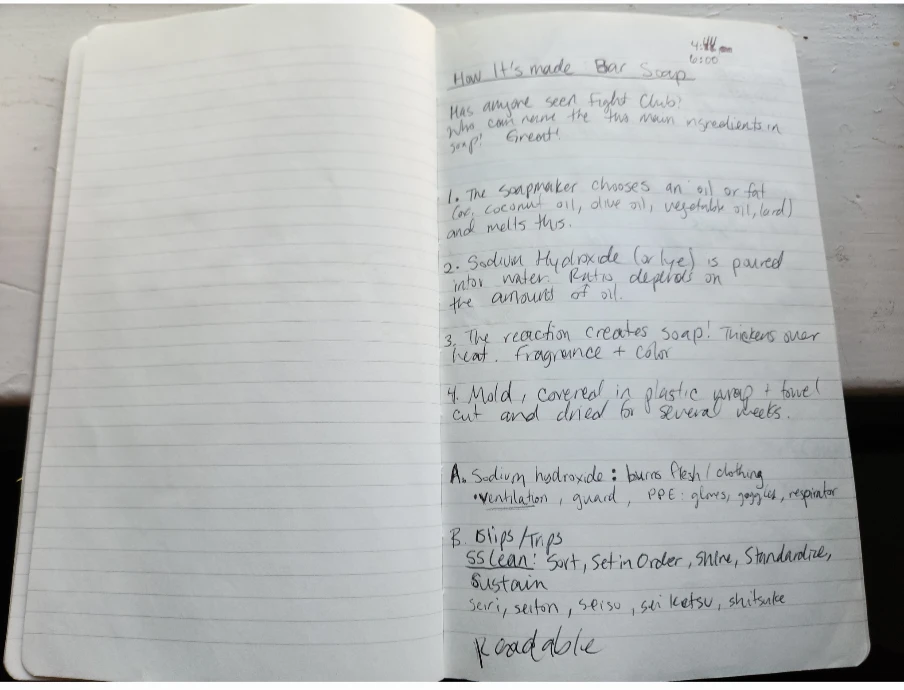 4:
6:00
How It's made Bar Soap
Has anyone seen Fight Club?
Who can name the two main ngredients in
soap? Great!
1. The soapmaker chooses an oil or fat
(ex. coconut oil, olive oil, vegetable oil, lard)
and melts this.
2. Sodium Hydroxide (or lye) is poured
into water. Ratio depends on
the amounts of oil.
3. The reaction creates soap! Thickens over
heat. Fragrance + color
4. Mold, covered in plastic wrap + towel
cut and dried for several weeks.
A. Sodium hydroxide: burns flesh/clothing
•ventilation, guard, PPE: gloves, goggles, respirator
B. Slips/Trips
5S Lean: Sort, Set in Order, Shine, Standardize,
Sustain
seiri, seiton, seiso, seiketsu, shitsuke
Readable